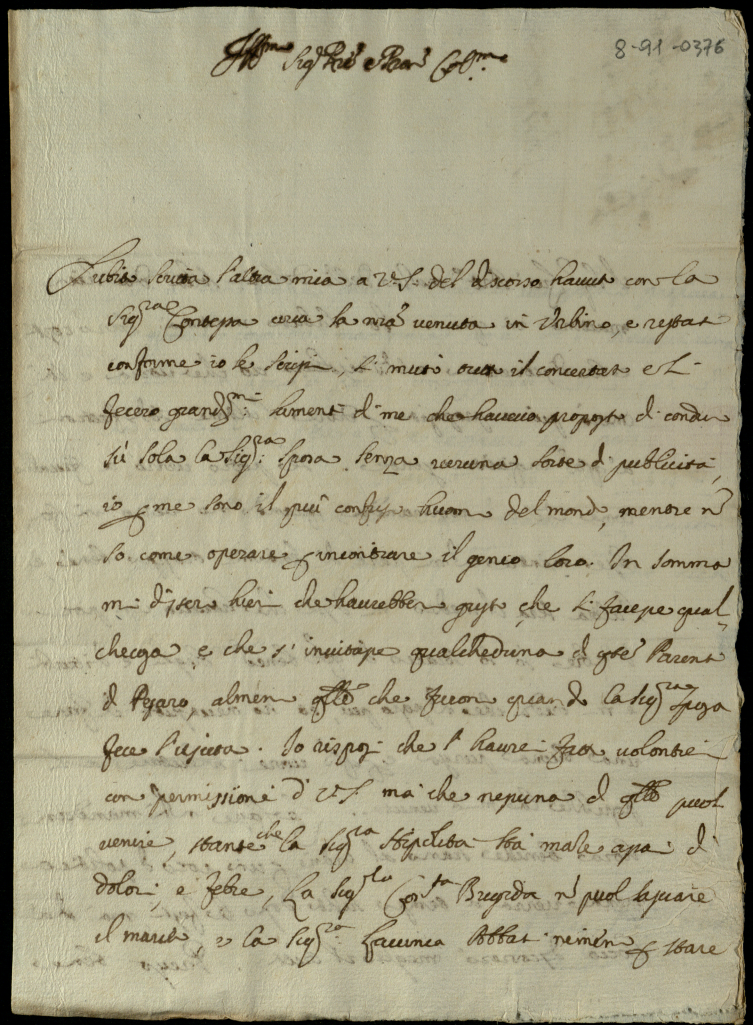 8-91-0376
Ill.mo Sig.r Pad.e e Pron Col.mo
Subito scritta l'altra mia a V.S. del discorso havuto con la
Sig.ra Contessa circa la mia venuta in Urbino, e restato
conforme io le scrissi, si mutò tutto il concertato e si
fecero grand.mi lamenti di me che havevo proposto di condur
sù sola la Sig.ra Sposa senza veruna sorte di publicità,
io p me sono il più confuso huomo del mondo, mentre nò
so come operare p incontrare il genio loro. In somma
mi dissero hieri che haurebbero gusto che si facesse qual
checosa e che s'invitasse qualcheduna di q.te Parenti
di Pesaro, almeno q.lle che furono quando la Sig.ra Sposa
fece l'uscita. Io risposi che l'haurei fatto volontieri
con permissione di V.S. ma che nessuna di q.lle puol
venire, stante che la Sig.ra Hippolita stà male assai di
dolori, e febre, La Sig.ra Con.sa Brigida nò puol lasciare
il marito, e la Sig.ra Abbati nemeno p stare